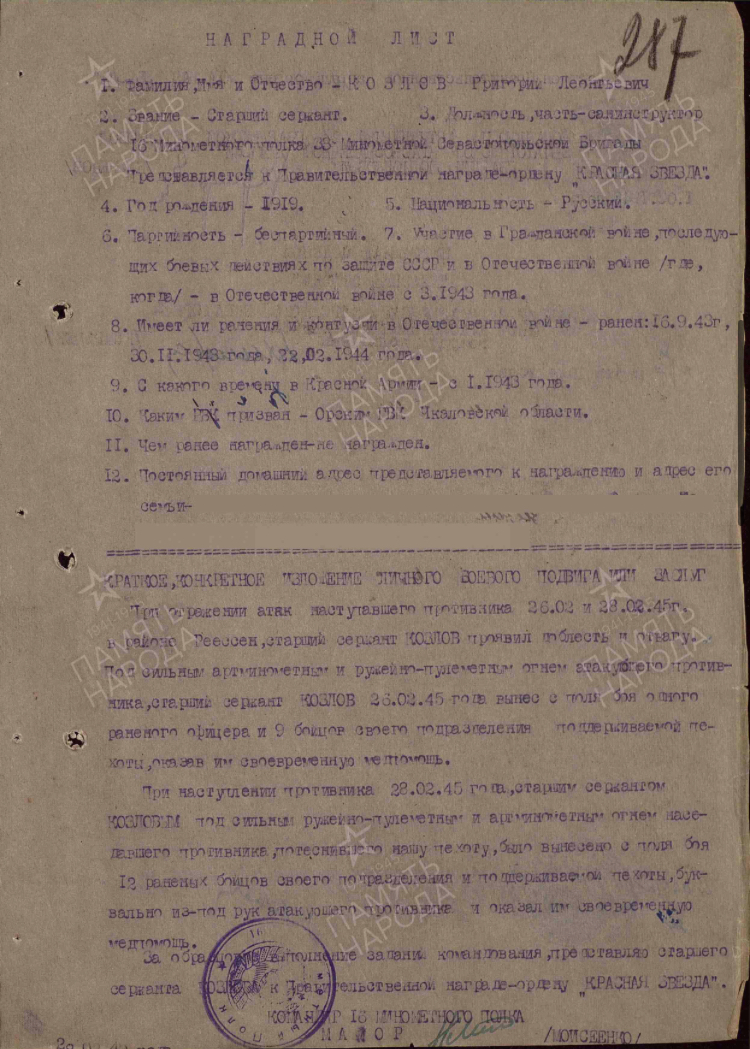 287
НАГРАДНОЙ ЛИСТ
1. Фамилия, Имя и Отчество - КОЗЛОВ Григорий Леонтьевич
2. Звание - Старший сержант. 3. Должность, часть-санинструктор
16 Минометного полка 33 Минометной Севастопольской Бригады
Представляется к Правительственной награде-ордену "КРАСНАЯ ЗВЕЗДА".
4. Год рождения - 1919. 5. Национальность - Русский.
6. Партийность - беспартийный. 7. Участие в Гражданской войне, последую-
щих боевых действиях по защите СССР и в Отечественной войне /где,
когда/ - в Отечественной войне с 3.1943 года.
8. Имеет ли ранения и контузии в Отечественной войне - ранен: 16.9.43г,
30.11.1943 года, 22,02.1944 года.
9. С какого времени в Красной Армии - с 1.1943 года.
10. Каким РВК призван - Орским РВК Чкаловской области.
11. Чем ранее награжден-не награжден.
12. Постоянный домашний адрес представляемого к награждению и адрес его
семьи-
КРАТКОЕ, КОНКРЕТНОЕ ИЗЛОЖЕНИЕ ЛИЧНОГО БОЕВОГО ПОДВИГА ИЛИ ЗАСЛУГ
При отражении атак наступавшего противника 26.02 и 28.02.45г.
в районе Реессен, старший сержант КОЗЛОВ проявил доблесть и отвагу.
Под сильным артминометным и ружейно-пулеметным огнем атакующего против-
ника, старший сержант КОЗЛОВ 26.02.45 года вынес с поля боя одного
раненого офицера и 9 бойцов своего подразделения поддерживаемой пе-
хоты, оказав им своевременную медпомощь.
При наступлении противника 28.02.45 года, старшим сержантом
КОЗЛОВЫМ под сильным ружейно-пулеметным и артминометным огнем насе-
давшего противника, потеснившего нашу пехоту, было вынесено с поля боя
12 раненых бойцов своего подразделения и поддерживаемой пехоты, бук-
вально из-под рук атакующего противника и оказал им своевременную
медпомощь.
За образцовое выполнение заданий командования, представляю старшего
сержанта КОЗЛОВА к Правительственной награде-ордену "КРАСНАЯ ЗВЕЗДА".
КОМАНДИР 16 МИНОМЕТНОГО ПОЛКА
МАЙОР /МОИСЕЕНКО/
ПАМЯТЬ НАРОДА